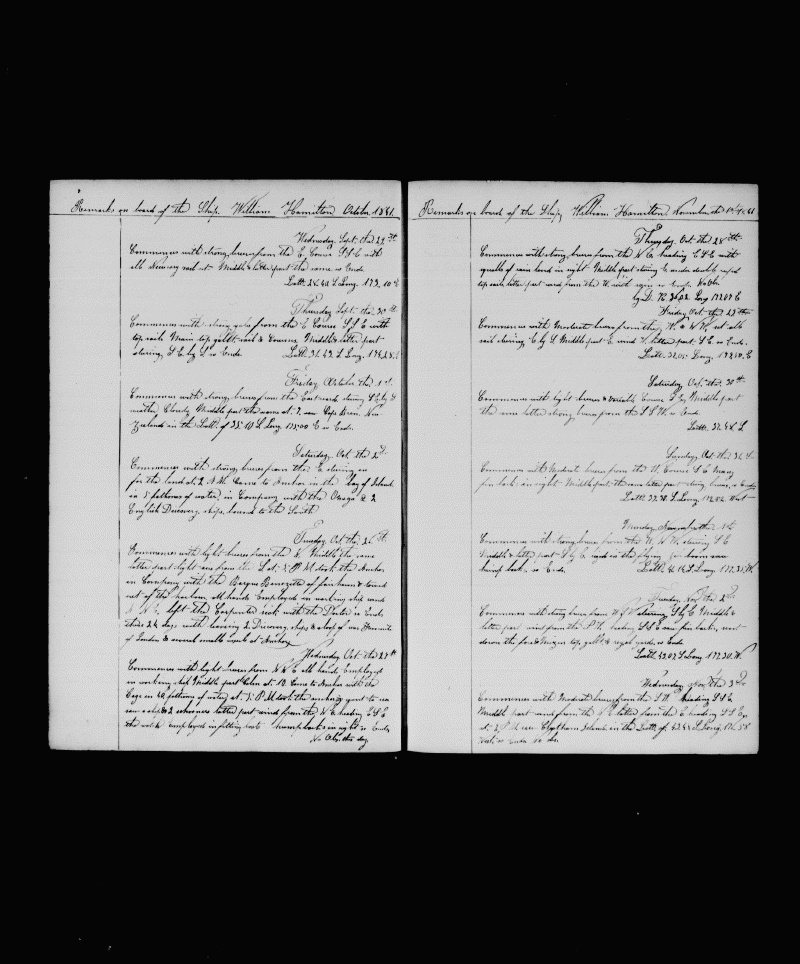 Remarks on board of the Ship William Hamilton October 1841
Wednesday Sept the 29th
Commences with strong breeses from the E, Course S S E with
all Necessary sail set Middle & latter part the same so Ends
Latt. 34.42 S Long. 173.10 E
Thursday Sept. the 30th
Commences with strong gales from the E Course S S E with
top sails Main top gallt sail & Courses Middle & latter part
stering S E by S so Ends Latt 34.42 S Long
Friday October the 1st
Commences with strong breeses from the Eastward stering
weather Cloudy Middle part the same at saw Cape Brett New
Zealand in the Latt of 35.10 S Long 175.00 E so Ends
Saturday Oct. the 2d
Commences with strong breeses from the E stering in
for the land at 2 P.M. Came to Anchor in the Bay of Islands
in 5 fathoms of water, in Company with the Omega & 2
English Discovery ships, bound to the South
Tuesday Oct the 26th
Commences with light breeses from the Middle the same
latter part light airs from the S at P M took the Anchor
in Company with the Barque Benezette of fair haven & towed
out of the harbour All hands Employed in working ship wind
N N E, left the Carpenter sick with the Doctor so Ends
these 24 days with leaving 2 Discovery ships & a sloop of war
of London & several smalls vessels at Anchor
Wednesday Oct. the 27th
Commences with light breeses from N N E all hands Employed
in working ship Middle part Calm at 12 Came to Anchor with the
in 40 fathoms of water at P M took the anchor & went to sea
saw a ship & 2 schooners latter part wind from the N E heading E S E
the watch employed in fitting boats humpbacks in sight so Ends
No Obs. this day
Remarks on board of the Ship William Hamilton November the 1st 1841
Thursday Oct the 28th
Commences with strong breeses from the N E heading E S E with
squalls of rain land in sight Middle part stering E under double reefed
top sails latter part wind from the N with rain so Ends No Obs
by D. R 34.02 Long 179.09 E
Friday Oct the 29th
Commences with Moderate breeses from the N. & W W. set all
sail stering E by S Middle part E and latter part S E so Ends.
Latt. 37.01 Long. 179.10 E
Saturday Oct. the 30th
Commences with light breeses & variable Course S E Middle part
the same latter strong breeses from the S S W so Ends
Latt. 37
Sunday Oct the 31st
Commences with Moderate breeses from the W Course S E Many
fin backs in sight Middle part the same latter part strong breeses, so Ends
Latt 39.38 S Long. 179.02 West
Monday November the 1st
Commences with strong breeses from the N. W W, stering S E
Middle & latter part S E by E reefed in the flying jib boom saw
hump backs so Ends. Latt. S Long. 177.35 W.
Tuesday Nov the 2d
Commences with strong breeses from W stering S E Middle &
latter part wind from the S W. heading S S E saw fin backs, sent
down the fore & mizen top gallt & royal yards so Ends
Latt. 43.02 S Long 177.30 W.
Wednesday Nov. the 3d
Commences with Moderate breeses from the S W heading S S E
Middle part wind from the latter from the E heading S S E
at P M saw Chatham Islands in the Latt. of 43.48 S Long. 176.58
West so Ends